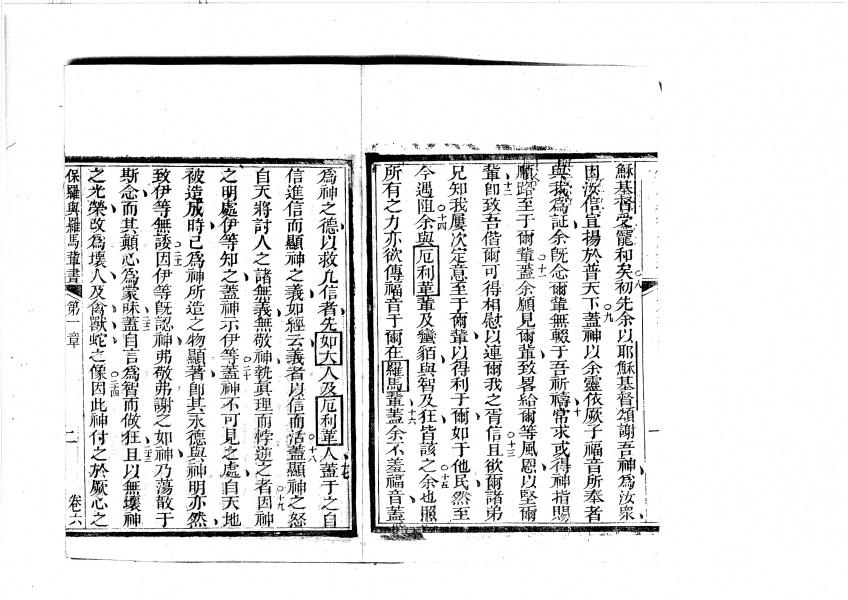 穌基督受寵和矣初先余以耶穌基督頌謝吾神為汝眾
○八
因汝信宜揚於普天下蓋神以余靈依厥子福音所奉者
○九
與我為証余既念爾輩無輟于吾祈禱常求或得神指賜
○十
順路至于爾輩蓋余願見爾輩致畧給爾等風恩以堅爾
○十一
輩即致吾偕爾可得相慰以連爾我之胥信且欲爾諸弟
○十二
○十三
兄知我屢次定意至于爾輩以得利于爾如于他民然至
今遇阻余與厄利革輩及蠻貊與智及狂皆該之余也照
○十四
○十五
所有之力亦欲傳福音于爾在羅馬輩蓋余不羞福音蓋
○十六
為神之德以救凡信者先如大人及厄利革人蓋于之自
信進信而顯神之義如經云義者以信而活蓋顯神之怒
○十八
自天將討人之諸無義無敬神執真理而悖逆之者因神
○十九
之明處伊等知之蓋神示伊等蓋神不可見之處自天地
○二十
被造成時已為神所造之物顯著即其永德與神明亦然
致伊等無諉因伊等既認神弗敬弗謝之如神乃蕩散于
○二一
斯念而其顛心為蒙昧蓋自言為智而做狂且以無壞神
○二二
○二三
之光榮改為壞人及禽獸蛇之像因此神付之於厥心之
○二四
保羅與羅馬輩書
第一章
二
卷六